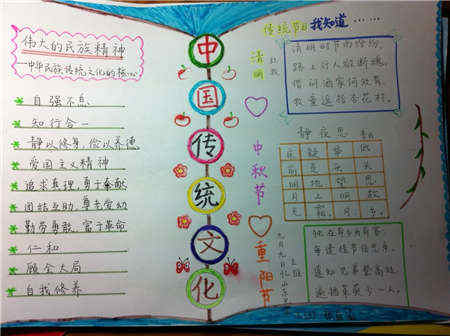 伟大的民族精神
——中华民族传统文化的核心
自强不息
知行合一
静以修身,俭以养德
爱国主义精神
追求真理,勇于奉献
团结互助,尊老爱幼
勤劳勇敢,富于革命
仁和
顾全大局
自我修养
中
国
传
统
文
化
传统节日我知道……
清明
杜牧
清明时节雨纷纷,
路上行人欲断魂。
借问酒家何处有,
牧童遥指杏花村。
中秋节
静夜思
床疑举低
前是头头
明地望思
月上明故
光,霜。月,乡。
重阳节
九月九日忆山东兄弟
王维
独在异乡为异客,
每逢佳节倍思亲。
遥知兄弟登高处,
遍插茱萸少一人。